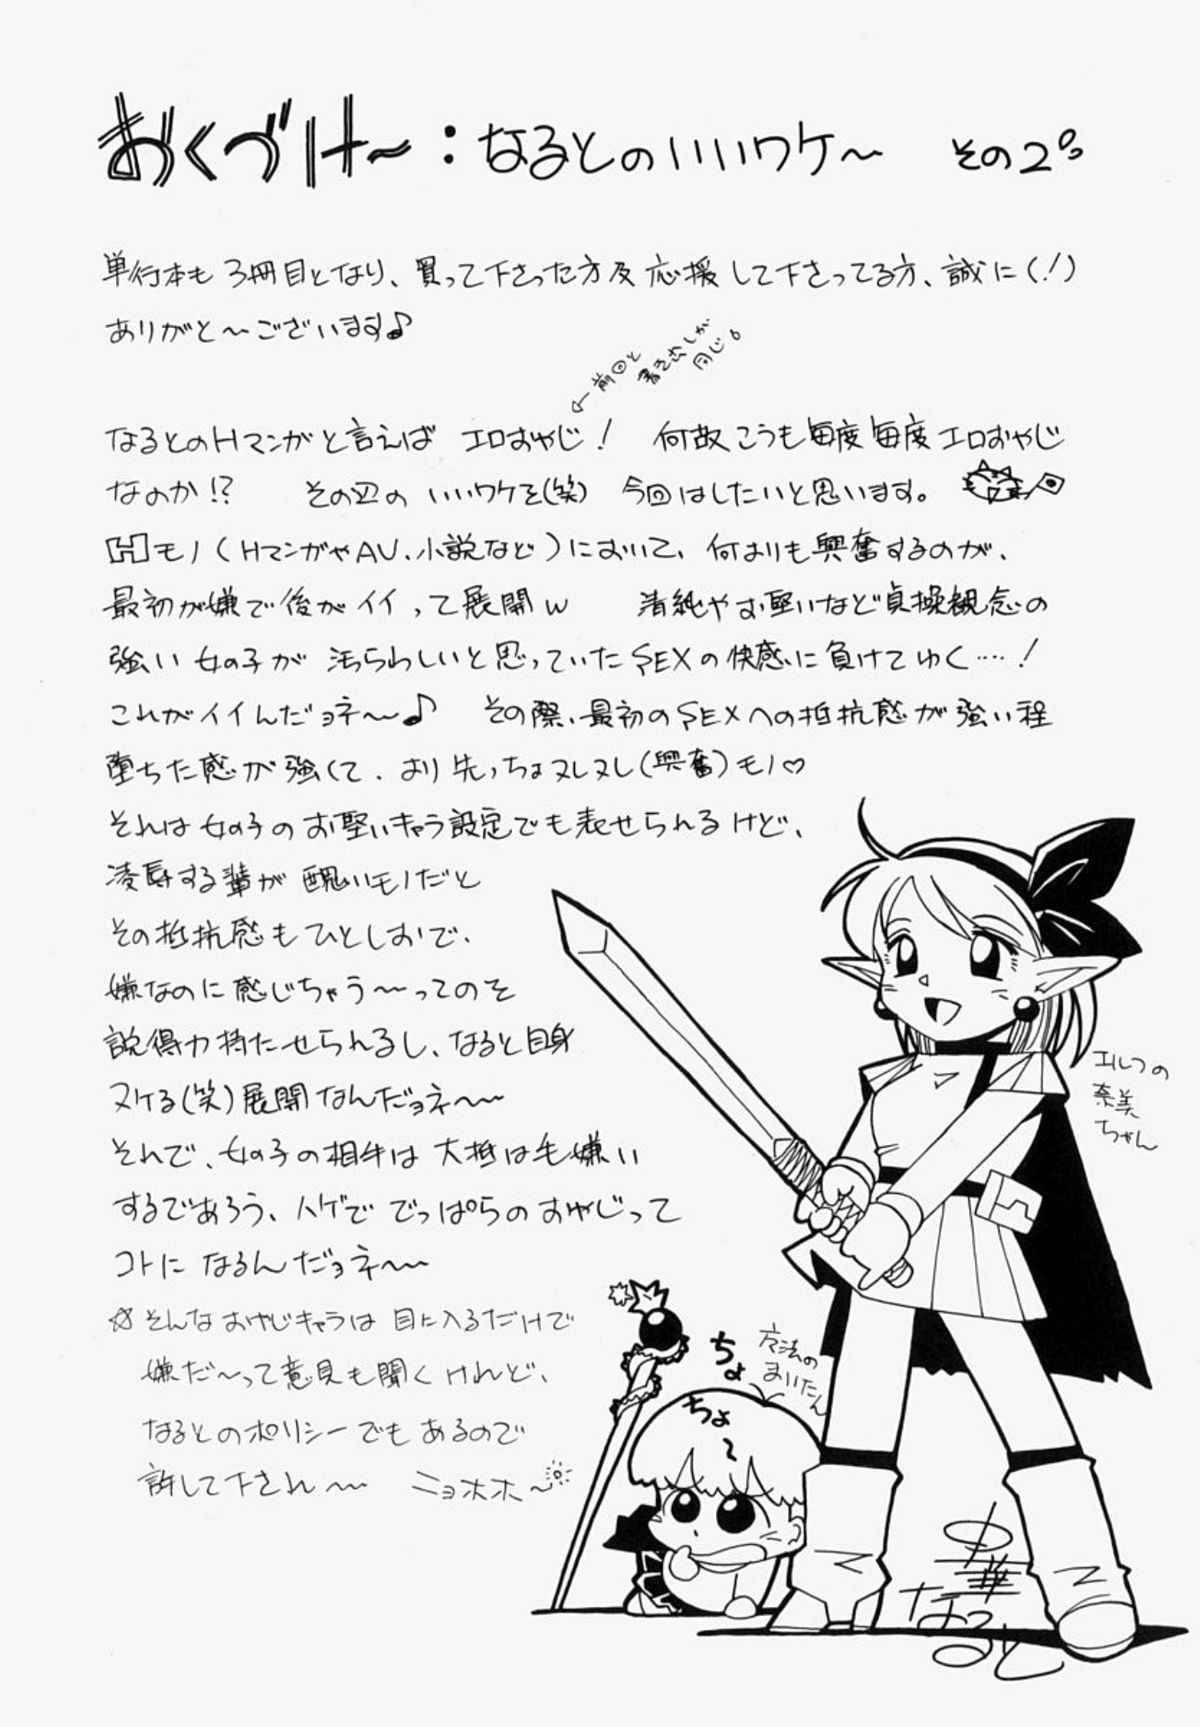 おくづけ〜：なるとのいいワケ〜 その2。
単行本も3冊目となり、買って下さった方及応援して下さってる方、誠に(！)
ありがと〜ございます♪
←前回と
書き出しが
同じ。
なるとのHマンガと言えば エロおやじ！ 何故こうも毎度毎度エロおやじ
なのか!? その辺の いいワケを(笑) 今回はしたいと思います。
Hモノ(HマンガやAV、小説など)において、何よりも興奮するのが、
最初が嫌で後がイイって展開w 清純やお堅いなど貞操観念の
強い女の子が 汚らわしいと思っていたSEXの快感に負けてゆく…！
これがイイんだョネ〜♪ その際、最初のSEXへの抵抗感が強い程
堕ちた感が強くて、より先っちょヌレヌレ(興奮)モノ♡
それは女の子のお堅いキャラ設定でも表せられるけど、
凌辱する輩が醜いモノだと
その抵抗感もひとしおで、
嫌なのに感じちゃう〜ってのを
説得力持たせられるし、なると自身
ヌケる(笑)展開なんだョネ〜
それで、女の子の相手は大抵は毛嫌い
するであろう、ハゲででっぱらのおやじって
コトになるんだョネ〜
☆そんなおやじキャラは目に入るだけで
嫌だ〜って意見も聞くけれど、
なるとのポリシーでもあるので
許して下され〜 ニョホホ〜
エルフの
奈美
ちゃん
ちょ
ちょ
〜
方法の
まいたん
なると